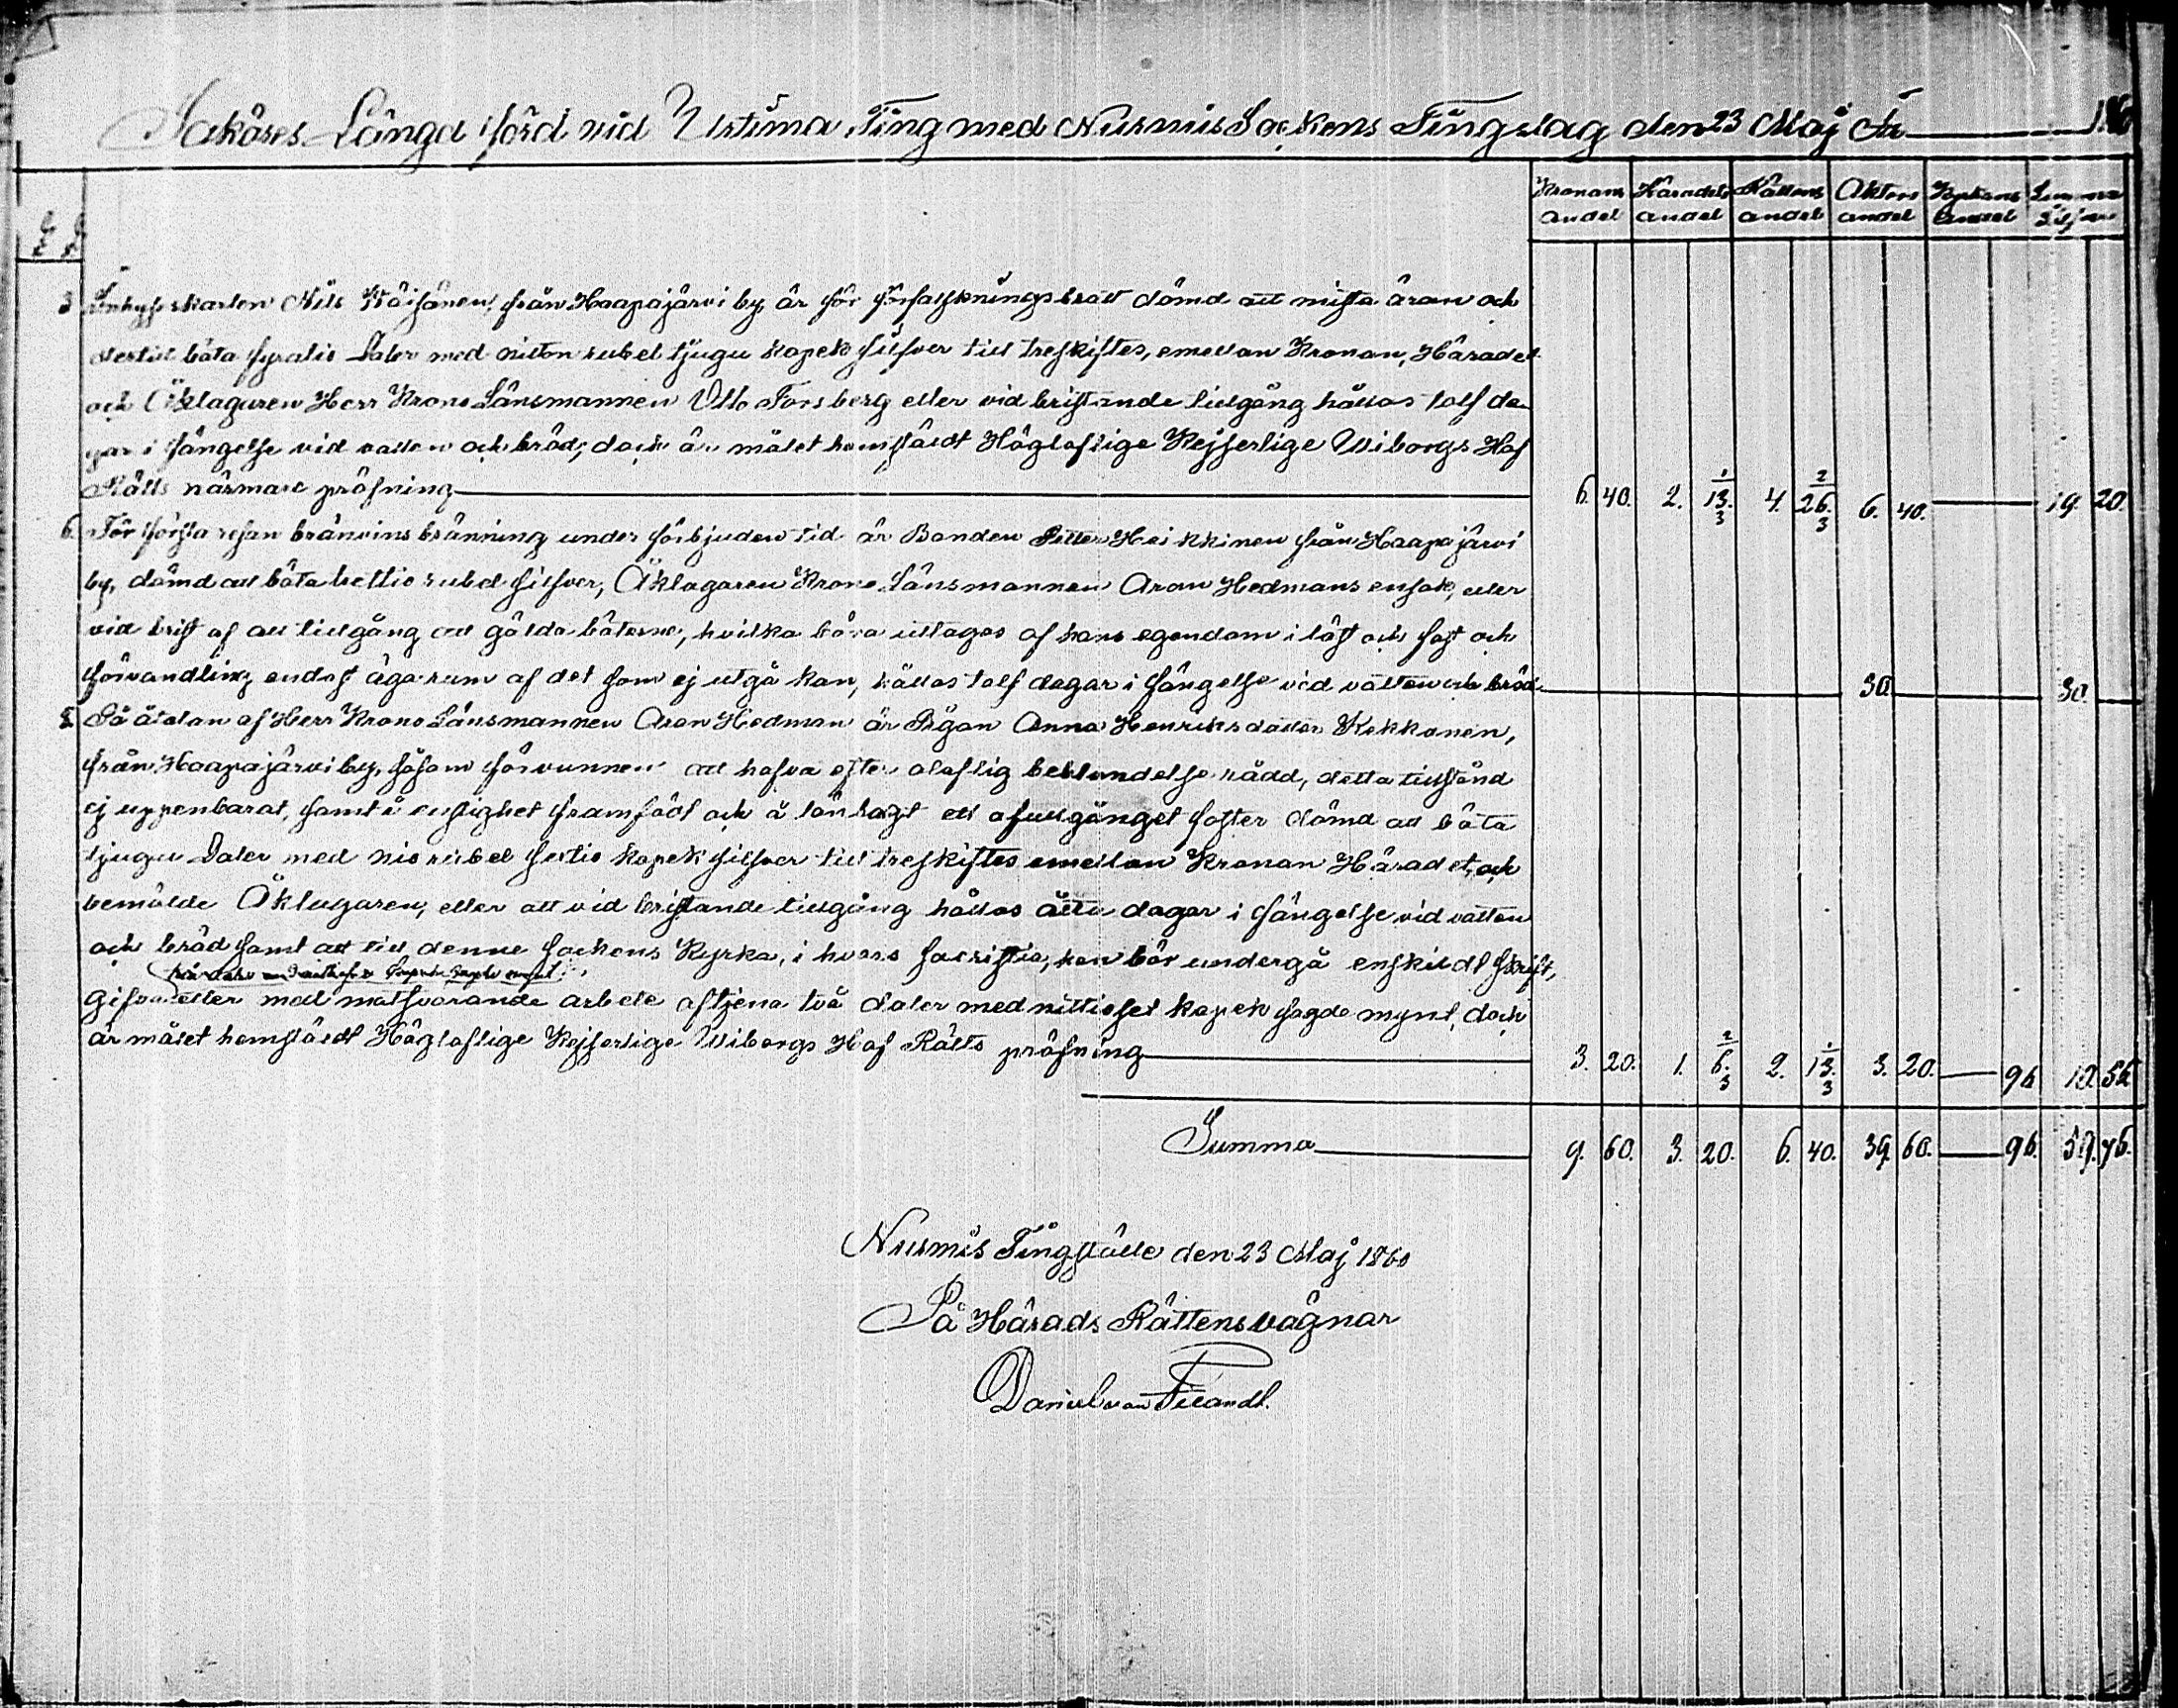 Saköres Längd förd vid Urtima Ting med Nurmis Sockens Tingslag den 23 Maj År 1860
Kronans andel Häradets andel Rättens andel Aktors andel Kyrkans andel Summa Silfver
3 Inhyseskarlen Nils Wäisänen, från Haapajärvi by, är för förfalskningsbrott dömd att mista äran och
dertill böta fyratio Daler med nitton rubel tjugu kopek silfver till treskiftes, emellan Kronan, Häradet
och Åklagaren Herr Krono Länsmannen Otto Forsberg eller vid bristande tillgång hållas tolf da
gar i fängelse vid vatten och bröd; dock är målet hemstäldt Högloflige Kejserlige Wiborgs Hof
Rätts närmare pröfning 6. 40. 2. 13 1/3. 4. 26 2/3. 6. 40. 19. 20.
6. För första resan bränvins bränning under förbjuden tid är Bonden Petter Heikkinen från Haapajärvi
by, dömd att böta trettio rubel silfver, Åklagaren Krono Länsmannen Aron Hedmans ensak, eller
vid brist af all tillgång att gälda böterne, hvilka böra uttagas af hans egendom i löst och fast och
förvandling endast äga rum af det som ej utgå kan, hållas tolf dagar i fängelse vid vatten och bröd 30. 30.
8 På åtalan af Herr Krono Länsmannen Aron Hedman är Pigan Anna Henriksdotter Kekkonen,
från Haapajärvi by, såsom förvunnen att hafva efter oloflig beblandelse rådd, detta tillstånd
ej uppenbarat, samt i enslighet framfödt och å lönlagt ett ofullgånget foster dömd att böta
tjugu Daler med nio rubel sextio kopek silfver till treskiftes emellan Kronan Häradet, och
bemälde Åklagaren, eller att vid bristande tillgång hållas åtta dagar i fängelse vid vatten
och bröd samt att till denne sockens Kyrka, i hvars sacristia, hon bör undergå enskildt skrift,
gifva eller med motsvarande arbete aftjena två daler med nittiosex kopek sagde mynt, dock
är målet hemstäldt Högloflige Kejserlige Wiborgs Hof Rätts pröfning 3. 20. 1. 6 2/3. 2. 13 1/3. 3. 20. 96 10. 56
Summa 9. 60. 3. 20. 6. 40. 39. 60. 96. 59. 76.
Nurmis Tingställe den 23 Maj 1860
På Härads Rättens vägnar
Daniel von Fieandt.